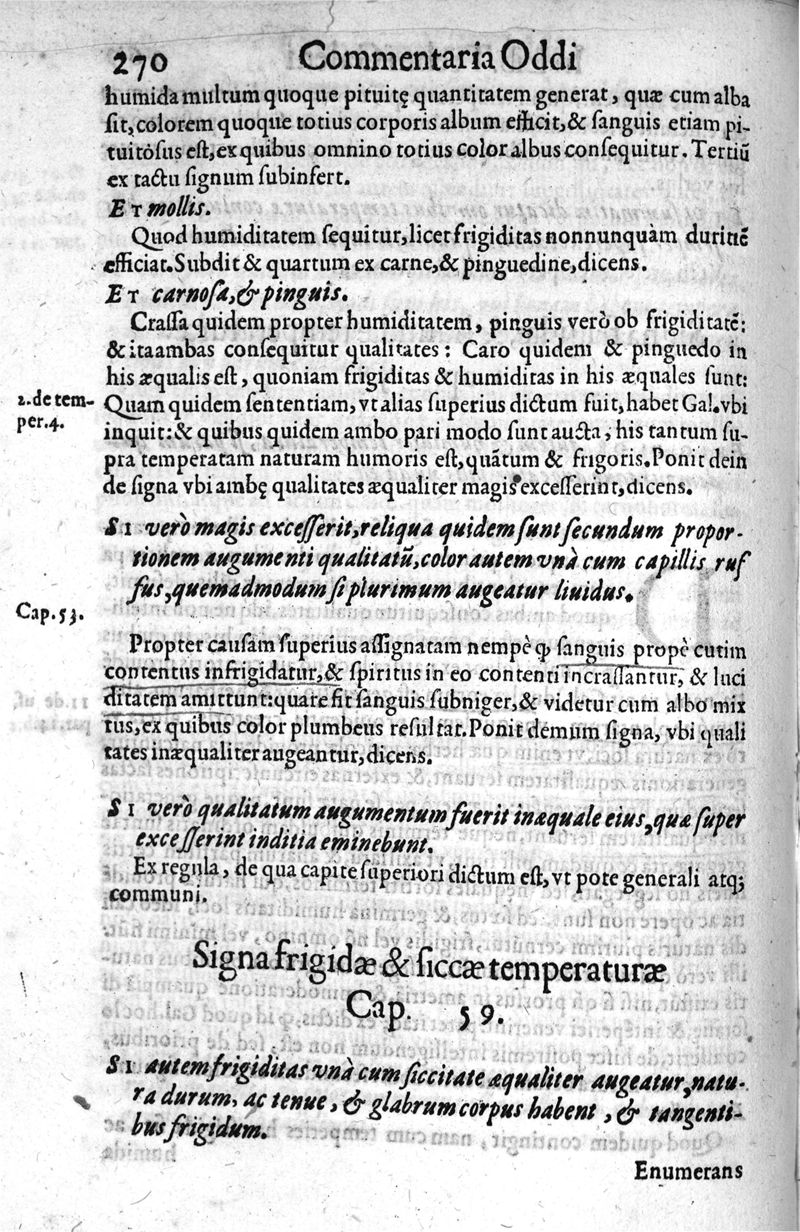 270 Commentaria Oddi
humida multum quoque pituitę quantitatem generat, quæ cum alba
ſit, colorem quoque totius corporis album efficit, & ſanguis etiam pi-
tuitoſus eſt, ex quibus omnino totius color albus conſequitur. Tertiũ
ex tactu ſignum ſubinfert.
ET mollis.
Quod humiditatem ſequitur, licet frigiditas nonnunquàm duritiẽ
efficiat. Subdit & quartum ex carne, & pinguedine, dicens.
ET carnoſa, & pinguis.
Craſſa quidem propter humiditatem, pinguis verò ob frigiditatẽ:
& ita ambas conſequitur qualitates: Caro quidem & pinguedo in
his æqualis eſt, quoniam frigiditas & humiditas in his æquales ſunt:
2. de tem-
per. 4.
Quam quidem ſententiam, vt alias ſuperius dictum fuit, habet Gal. vbi
inquit: & quibus quidem ambo pari modo ſunt aucta, his tantum ſu-
pra temperatam naturam humoris eſt, quãtum & frigoris. Ponit dein
de ſigna vbi ambę qualitates æqualiter magis exceſſerint, dicens.
SI verò magis exceſſerit, reliqua quidem ſunt ſecundum propor-
tionem augumenti qualitatũ, color autem vnà cum capillis ruf
fus, quemadmodum ſi plurimum augeatur liuidus.
Cap. 53.
Propter cauſam ſuperius aſſignatam nempè ꝙ ſanguis propè cutim
contentus infrigidatur, & ſpiritus in eo contenti incraſſantur, & luci
ditatem amittunt: quare fit ſanguis ſubniger, & videtur cum albo mix
tus, ex quibus color plumbeus reſultat. Ponit demum ſigna, vbi quali
tates inæqualiter augeantur, dicens.
SI verò qualitatum augumentum fuerit inæquale eius, quæ ſuper
exceſſerint inditia eminebunt.
Ex regula, de qua capite ſuperiori dictum eſt, vt pote generali atq;
communi.
Signa frigidæ & ſiccæ temperaturæ
Cap. 59.
SI autem frigiditas vnà cum ſiccitate æqualiter augeatur, natu-
ra durum, ac tenue, & glabrum corpus habent, & tangenti-
bus frigidum.
Enumerans